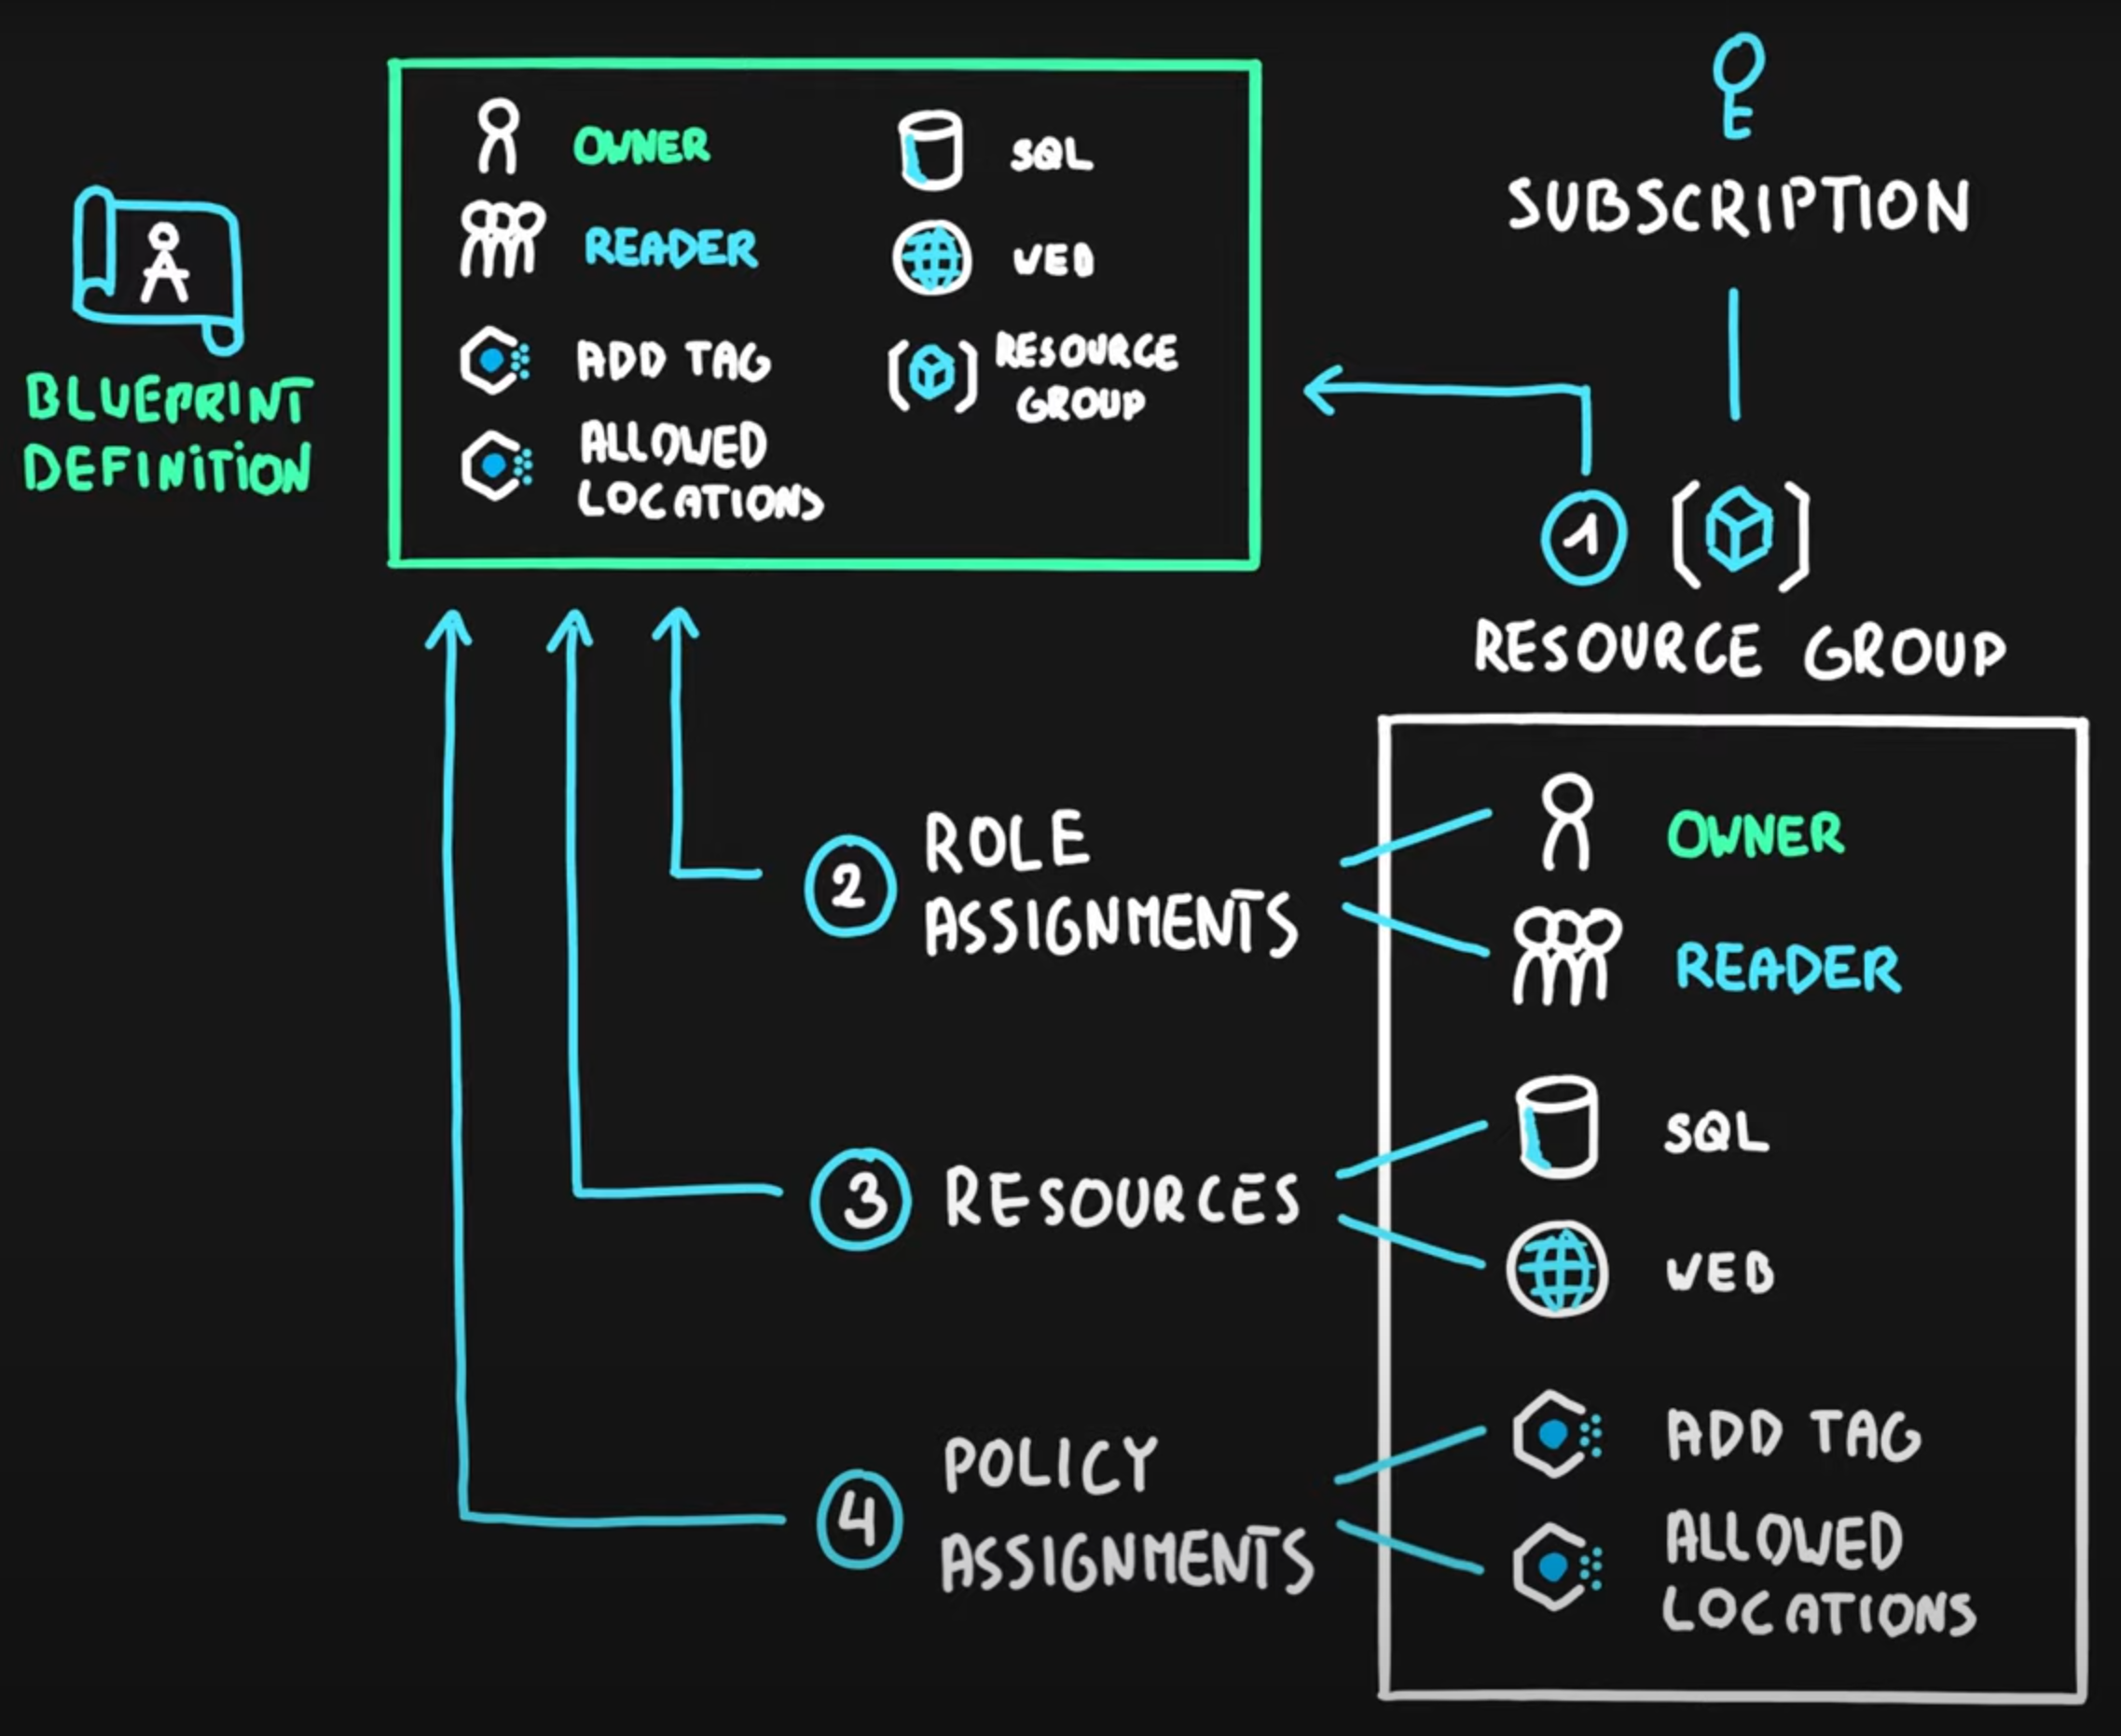 BLUEPRINT
DEFINITION
OWNER
READER
ADD TAG
ALLOWED
LOCATIONS
SQL
WEB
RESOURCE
GROUP
SUBSCRIPTION
1
RESOURCE GROUP
2
ROLE
ASSIGNMENTS
OWNER
READER
3
RESOURCES
SQL
WEB
4
POLICY
ASSIGNMENTS
ADD TAG
ALLOWED
LOCATIONS